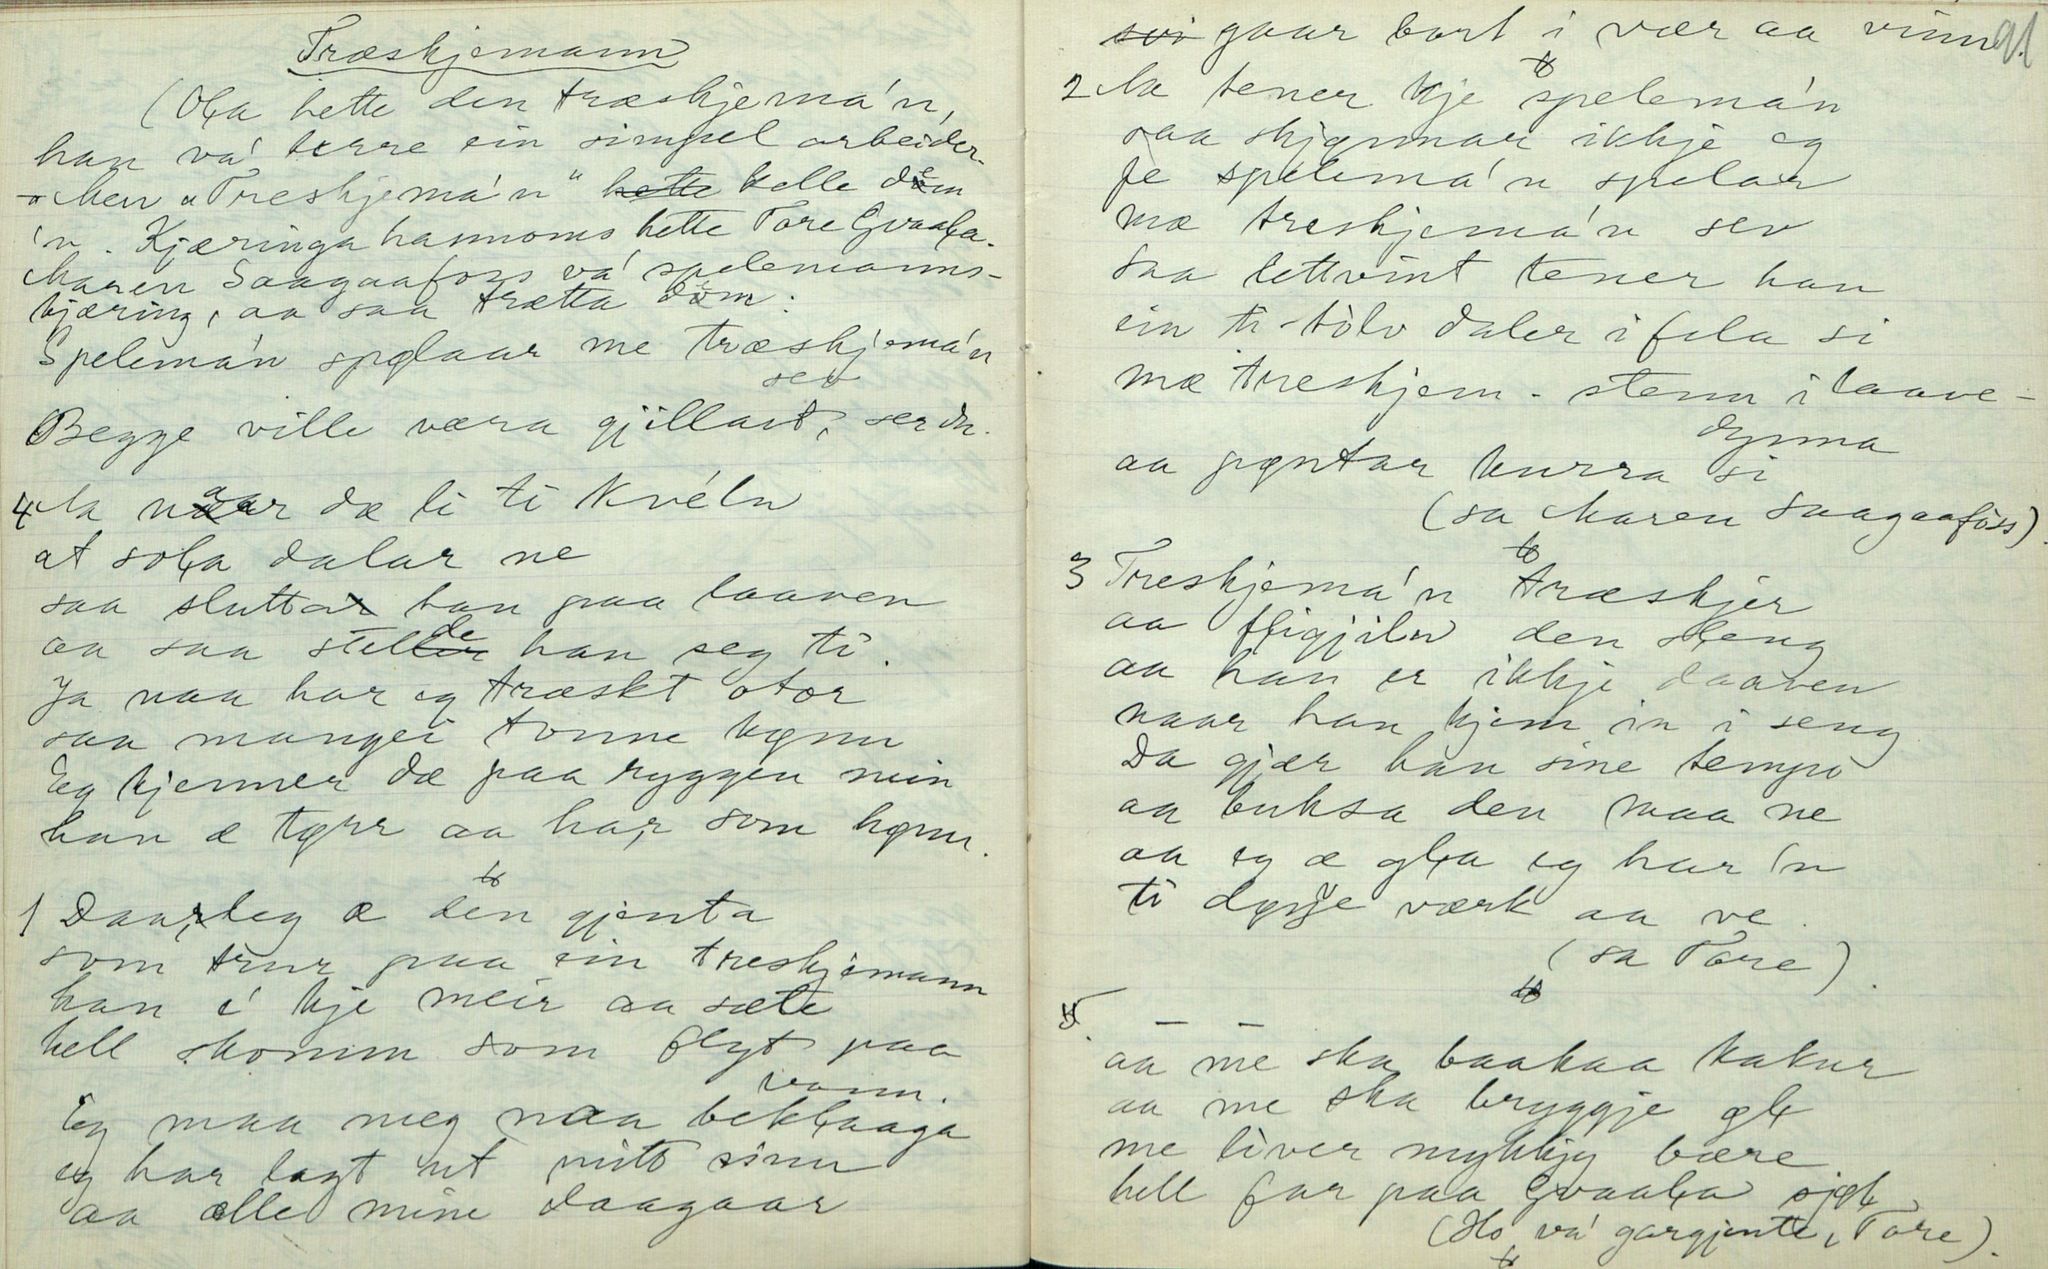 Træskjemann
(Oła hette den træskjemá'n,
han vá berre ein simpel arbeider-
- Men "Treskjemá'n" hette kelle døm
'n. Kjæringa hannoms hette Tore Gvaała.
Maren Saagaafoss vá spelemanns-
kjæring, aa saa trætta døm.
Spelemá'n spølaar me træskjemá'n
sev
Begge ville væra gjillast, ser du.
4 Aa naar dæ li ti Kvéln
at soła dalar ne
saa sluttar han paa laaven
aa saa stellde han seg ti.
Ja naa har eg træskt otor
saa mangei tonne kønn
Eg kjenner dæ paa ryggen min
han æ tørr aa har, som hønn.
1 Daarleg æ den gjenta
som trur paa ein treskjemann
han é kje meir aa sæte
hell skomm som flyt paa
vann.
Eg maa meg naa bekłaaga
eg har lagt ut mitt sinn
aa alle mine daagaar
91
som gaar bort i vær aa vinn.
2 Aa tener kje spelemá'n
saa skjønnar ikkje eg
fe spelemá'n spelar
mæ treskjemá'n sev
Saa lettvint tener han
ein ti-tolv daler i fela si
mæ treskjem. stenn i laave-
dynna
aa pøntar kurra si
(sa Maren Saagaafoss).
3 Treskjemá'n træskjer
aa fłigjiln den sleng
aa han er ikkje daaven
naar han kjem in i seng
Da gjær han sine tempo
aa buksa den maa ne
aa eg æ gła eg har 'n
ti døgje værk aa ve.
(sa Tore).
5. — —
aa me ska baakaa kakur
aa me ska bryggje øł
me liver mykkjy bære
hell far paa Gvaała sjøł
(Ho vá gargjente, Tore).